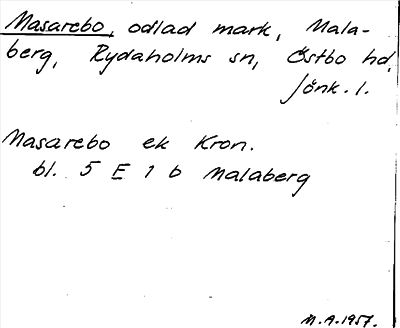 Masarebo, odlad mark, Mala-
berg, Rydaholms sn, Östbo hd,
Jönk. l.
Masarebo ek Kron.
bl. 5 E 1 b Malaberg
M.A.1957.